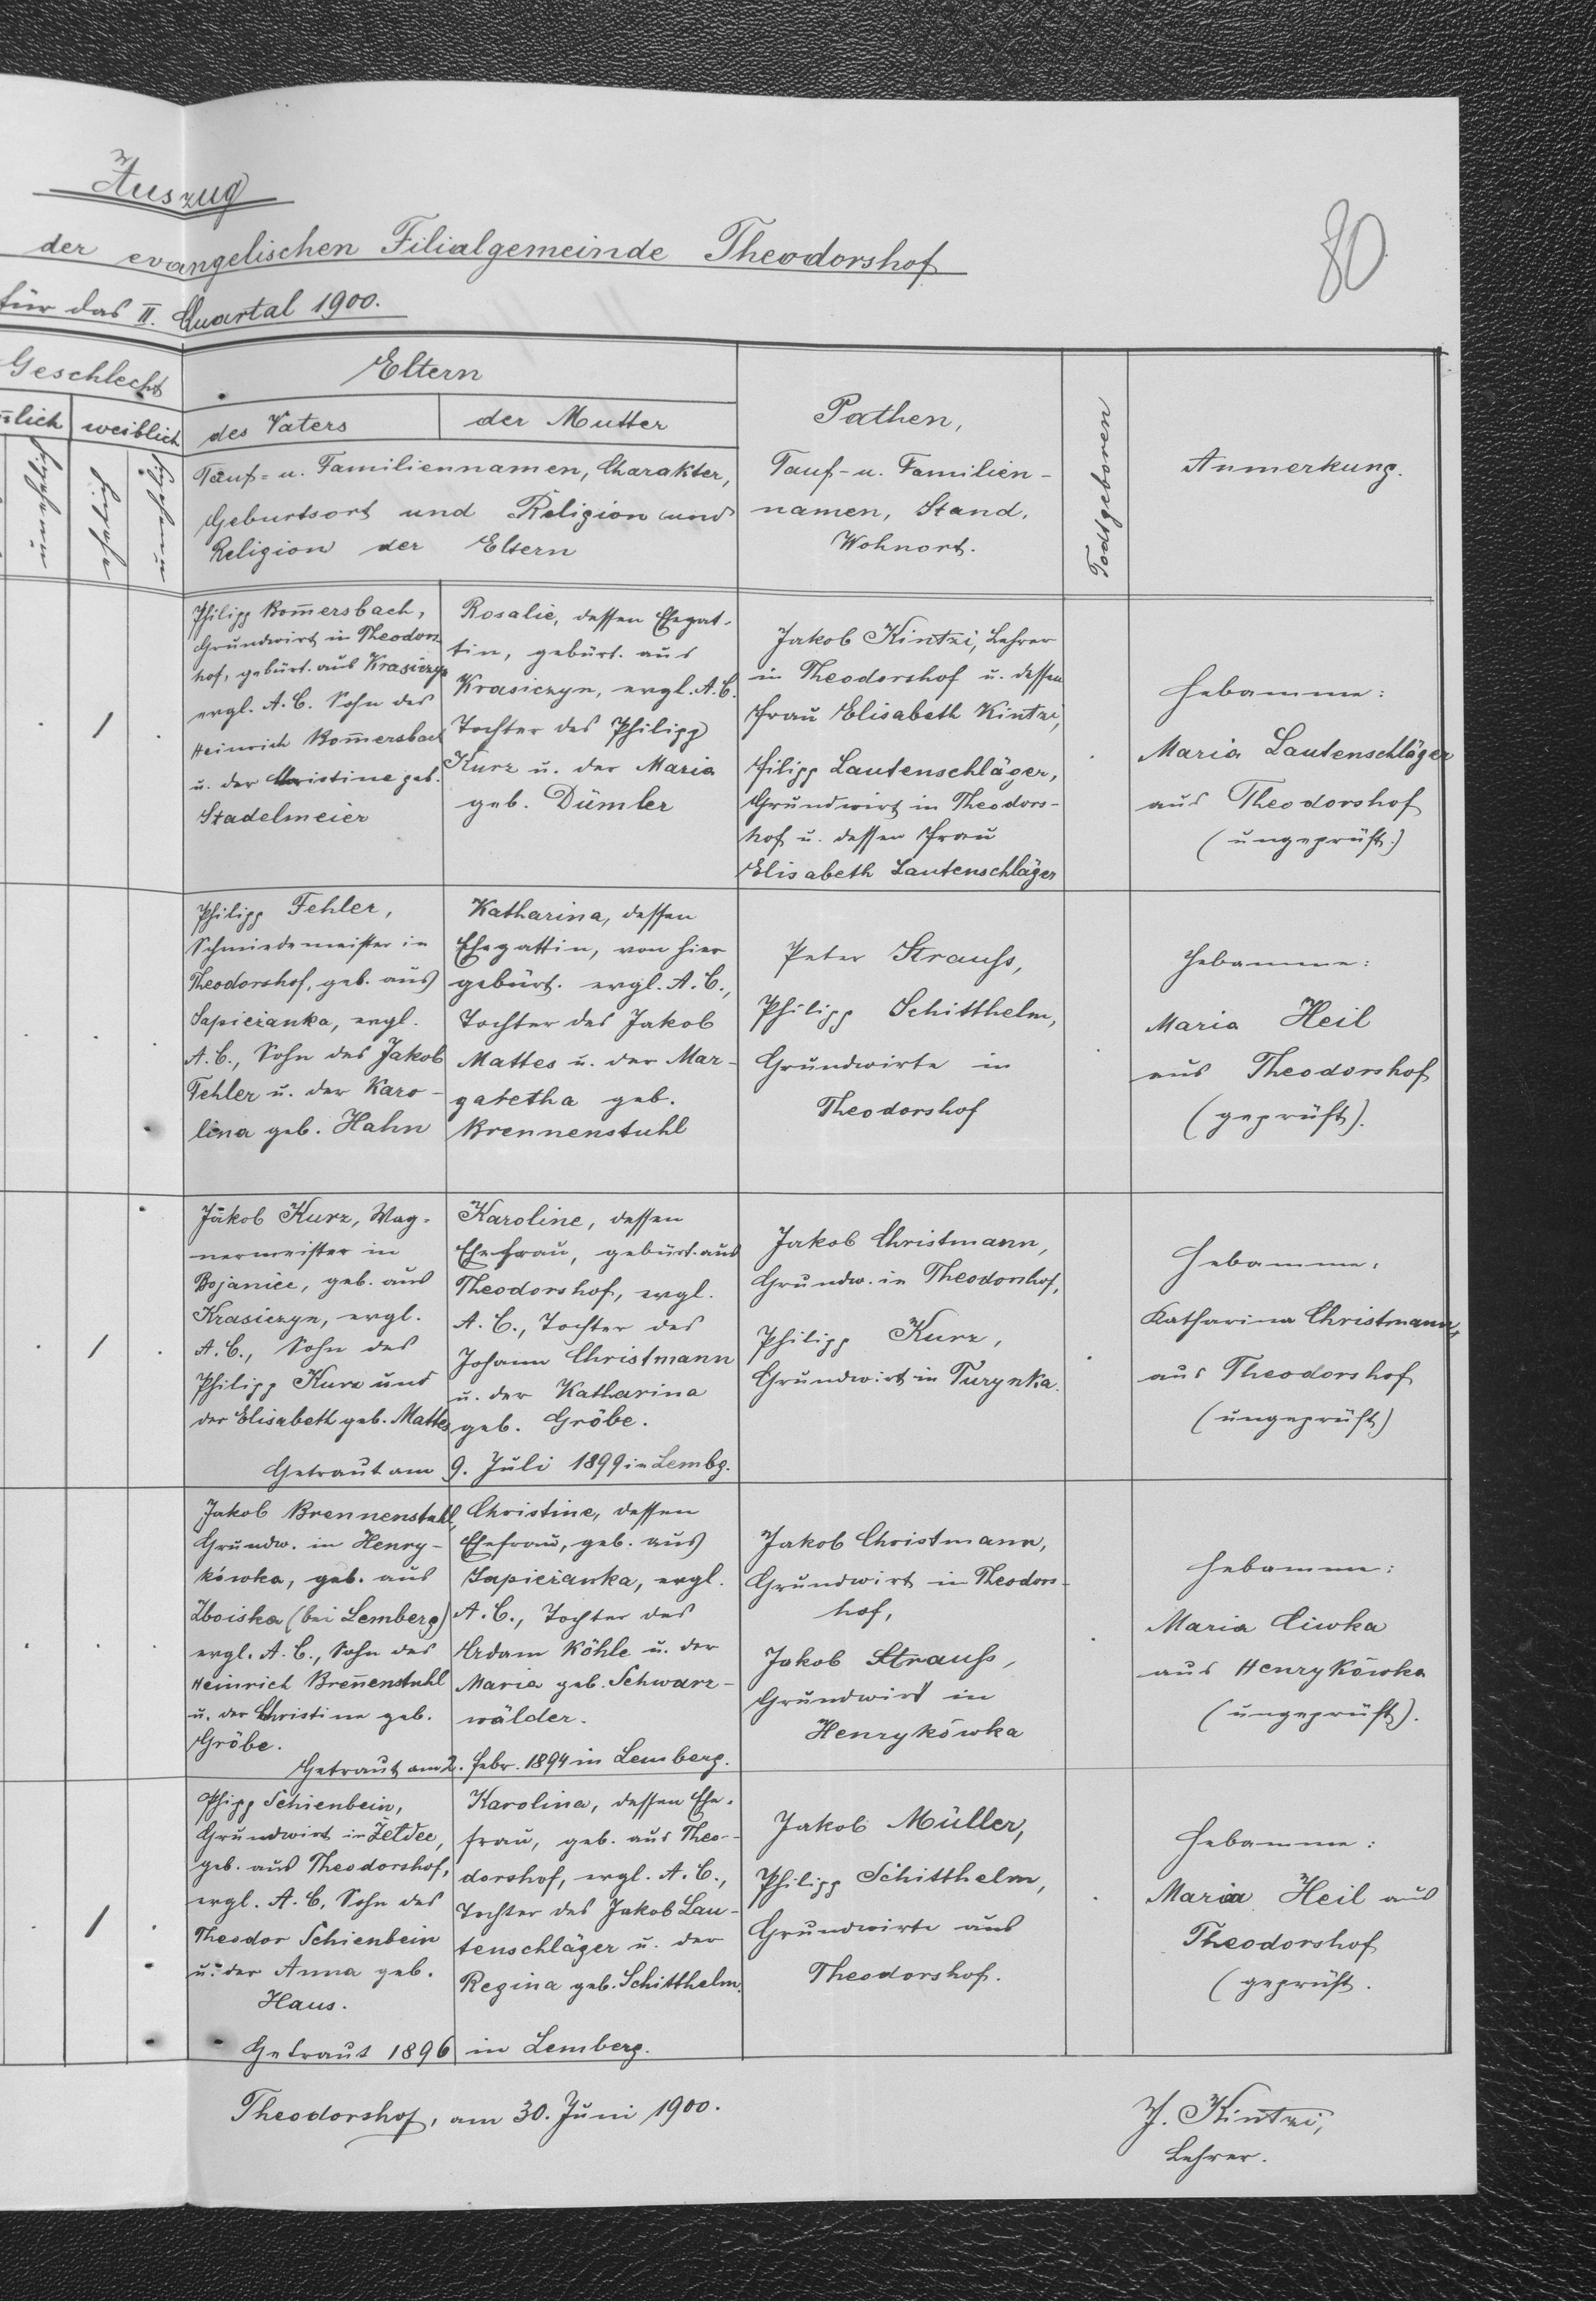 Auszug
der evangelischen Filialgemeinde Theodorshof
80
für das II. Quartal 1900.
Geschlecht
Eltern
Pathen,
Todtgeboren
Anmerkung.
weiblich
des Vaters
der Mutter
Tauf- u. Familiennamen, Charakter,
Geburtsort und Religion und
Religion der Eltern
Tauf- u. Familien-
namen, Stand,
Wohnort.
1
Philipp Kom̄ersbach,
Grundwirt in Theodors-
hof, gebürt. aus Krasiczyn
evgl. A. C. Sohn des
Heinrich Kom̄ersbach
u. der Christine geb.
Stadelmeier
Rosalie, dessen Ehegat-
tin, gebürt. aus
Krasiczyn, evgl. A. C.
Tochter des Philipp
Kurz u. der Maria
geb. Dümler
Jakob Kintzi, Lehrer
in Theodorshof u. dessen
Frau Elisabeth Kintzi,
Filipp Lautenschläger,
Grundwirt in Theodors-
hof u. dessen Frau
Elisabeth Lautenschläger
Hebamme:
Maria Lautenschläger
aus Theodorshof
(ungeprüft.)
Philipp Fehler,
Schmiedemeister in
Theodorshof, geb. aus
Sapieżanka, evgl.
A. C., Sohn des Jakob
Fehler u. der Karo-
lina geb. Hahn
Katharina, dessen
Ehegattin, von hier
gebürt. evgl. A. C.,
Tochter des Jakob
Mattes u. der Mar-
garetha geb.
Brennenstuhl
Peter Strauß,
Philipp Schitthelm,
Grundwirte in
Theodorshof
Hebamme:
Maria Heil
aus Theodorshof
(geprüft).
1
Jakob Kurz, Wag-
nermeister in
Bojaniec, geb. aus
Krasiczyn, evgl.
A. C., Sohn des
Philipp Kurz und
der Elisabeth geb. Mattes
Karoline, dessen
Ehefrau, gebürt. aus
Theodorshof, evgl.
A. C., Tochter des
Johann Christmann
u. der Katharina
geb. Gröbe.
Getraut am 9. Juli 1899 in Lembg.
Jakob Christmann,
Grundw. in Theodorshof,
Philipp Kurz,
Grundwirt in Turynka.
Hebamme:
Katharina Christmann
aus Theodorshof
(ungeprüft)
Jakob Brennenstuhl,
Grundw. in Henry-
kówka, geb. aus
Zboiska (bei Lemberg)
evgl. A. C., Sohn des
Heinrich Breñenstuhl
u. der Christine geb.
Gröbe.
Christine, dessen
Ehefrau, geb. aus
Sapieżanka, evgl.
A. C., Tochter des
Adam Köhle u. der
Maria geb. Schwarz-
wälder.
Getraut am 2. Febr. 1894 in Lemberg.
Jakob Christmann,
Grundwirt in Theodors-
hof,
Jakob Strauß,
Grundwirt in
Henrykówka
Hebamme:
Maria
aus Henrykówka
(ungeprüft).
1
Phipp Schienbein,
Grundwirt in Żełdec,
geb. aus Theodorshof,
evgl. A. C, Sohn des
Theodor Schienbein
u. der Anna geb.
Haus.
Karolina, dessen Ehe-
frau, geb. aus Theo-
dorshof, evgl. A. C.,
Tochter des Jakob Lau-
tenschläger u. der
Regina geb. Schitthelm.
Getraut 1896 in Lemberg.
Jakob Müller,
Philipp Schitthelm,
Grundwirte aus
Theodorshof.
Hebamme:
Maria Heil aus
Theodorshof
(geprüft.
Theodorshof, am 30. Juni 1900.
J. Kintzi,
Lehrer.